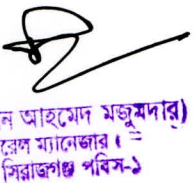 ন আহমেদ মজুমদার)
রেল ম্যানেজার (
সিরাজগঞ্জ পবিস-১